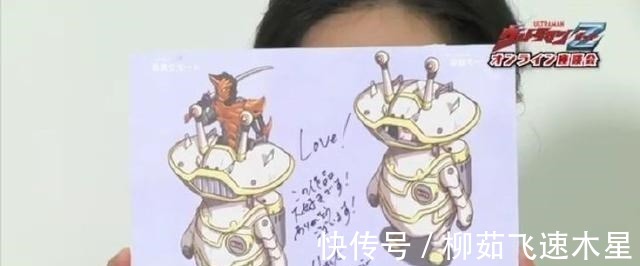 ULTRAMAN
ウルトラマンZ
オンライン座談会
Love!
この作品
大好きです!
ありがとう
ございます!
快传号 / 柳茹飞速木星